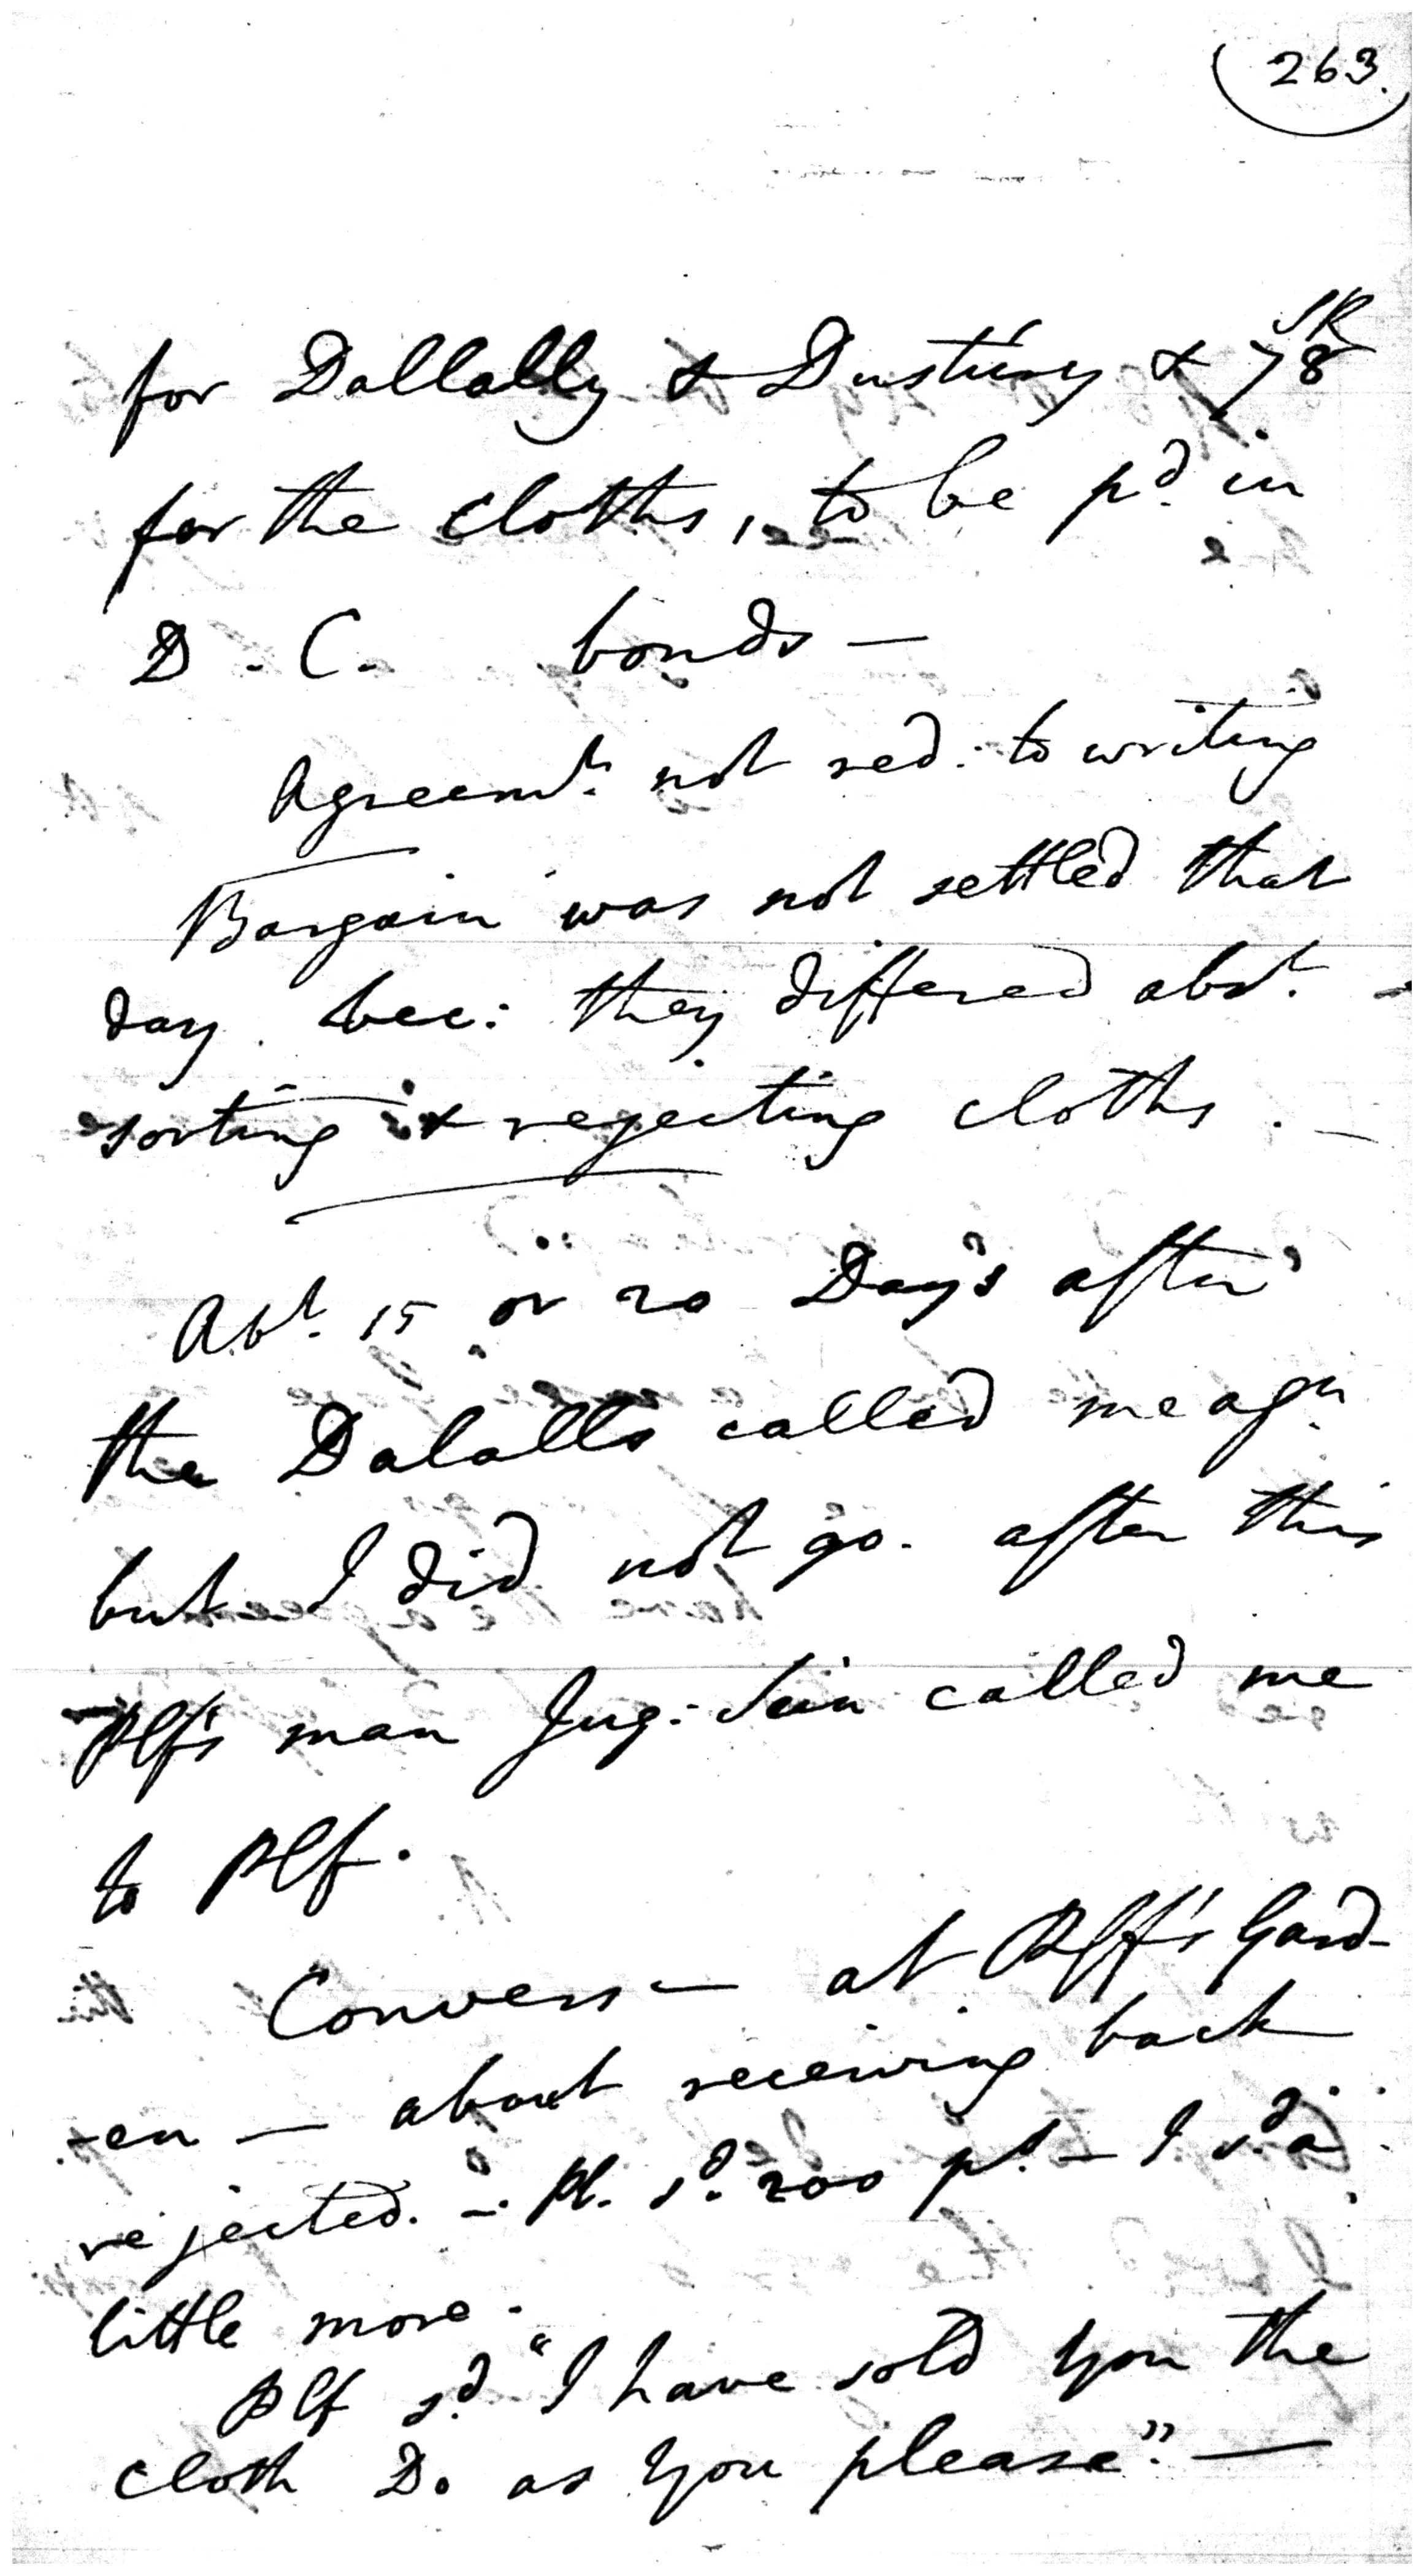 263.
for Dallally & Dustury & 78 SR
for the cloths, to be pd. in
D. C. bonds —
Agreemt. not red: to writing
Bargain was not settled that
day. bec: they differed abt.
sorting & rejecting cloths. —
Abt. 15 or 20 Day's after
the Dalalls called me agn.
but I did not go. after this
Plf's man Jug: Sein called me
to Plf.
Convers— at Plff's Gard-
-en — about receiving back
rejected. — Pl. sd. 200 ps. — I sd. a
little more.
Plf sd. "I have sold you the
cloth Do as you please". —